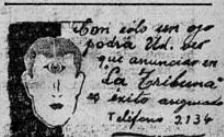 Con sólo un ojo
podrá Ud. ver
que anunciar en
La Tribuna
es éxito
Teléfono 2134